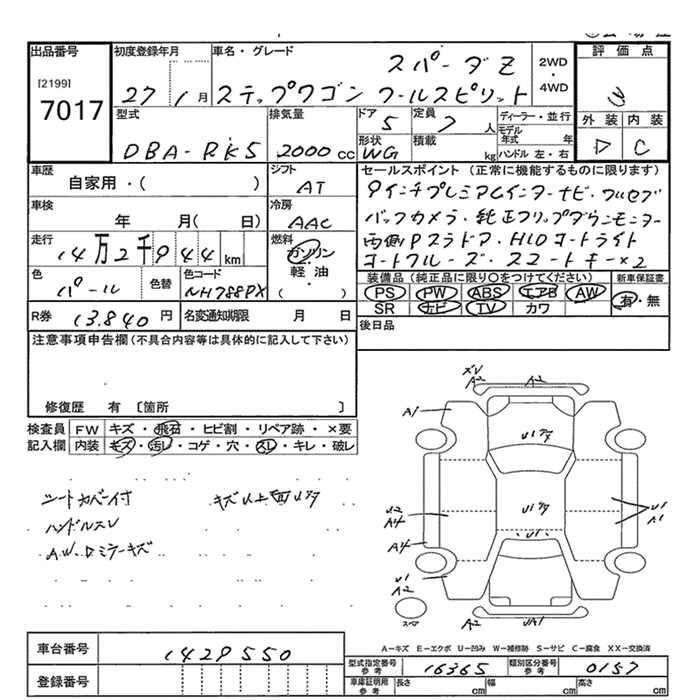 出品番号
[2199]
7017
初度登録年月
27 年 1 月
車名・グレード
スパーダZ
ステップワゴン クールスピリット
2WD
・
4WD
評価点
外装 内装
D C
型式
DBA-RK5
排気量
2000 cc
ドア
5
定員
7 人
形状
WG
積載
kg
ディーラー・並行
モデル年式 年
ハンドル 左・右
車歴
自家用・( )
シフト
AT
車検
年 月( 日)
冷房
AAC
走行
14万2千944 km
燃料
ガソリン
・
軽油
・
( )
色
パール
色替
色コード
NH788PX
R券
13.840 円
名変通知期限 月 日
セールスポイント (正常に機能するものに限ります)
9インチプレミアムインターナビ・フルセグ
バックカメラ・純正フリップダウンモニター
両側Pスラドア・HIDオートライト
オートクルーズ・スマートキー×2
装備品(純正品に限り○をつけてください)
PS PW ABS エアB AW
SR ナビ TV カワ
新車保証書
有・無
後日品
注意事項申告欄(不具合内容等は具体的に記入して下さい)
修復歴 有 〔箇所 〕
検査員 FW キズ・飛石・ヒビ割・リペア跡・×要
記入欄 内装 キズ・汚レ・コゲ・穴・スレ・キレ・破レ
シートカバー付
キズ以上面U7タ
ハンドルスレ
A.W.Dミラーキズ
A2
A2
A1
U1アタ
U2
A4
A4
U1アタ
U1
A1
U1
U1
A2
A2
UA1
スペア
A-キズ E-エクボ U-凹み W-補修跡 S-サビ C-腐食 XX-交換済
車台番号
1429550
登録番号
型式指定番号
参考
16365
類別区分番号
参考
0157
車庫証明用
参考
長さ cm
幅 cm
高さ cm